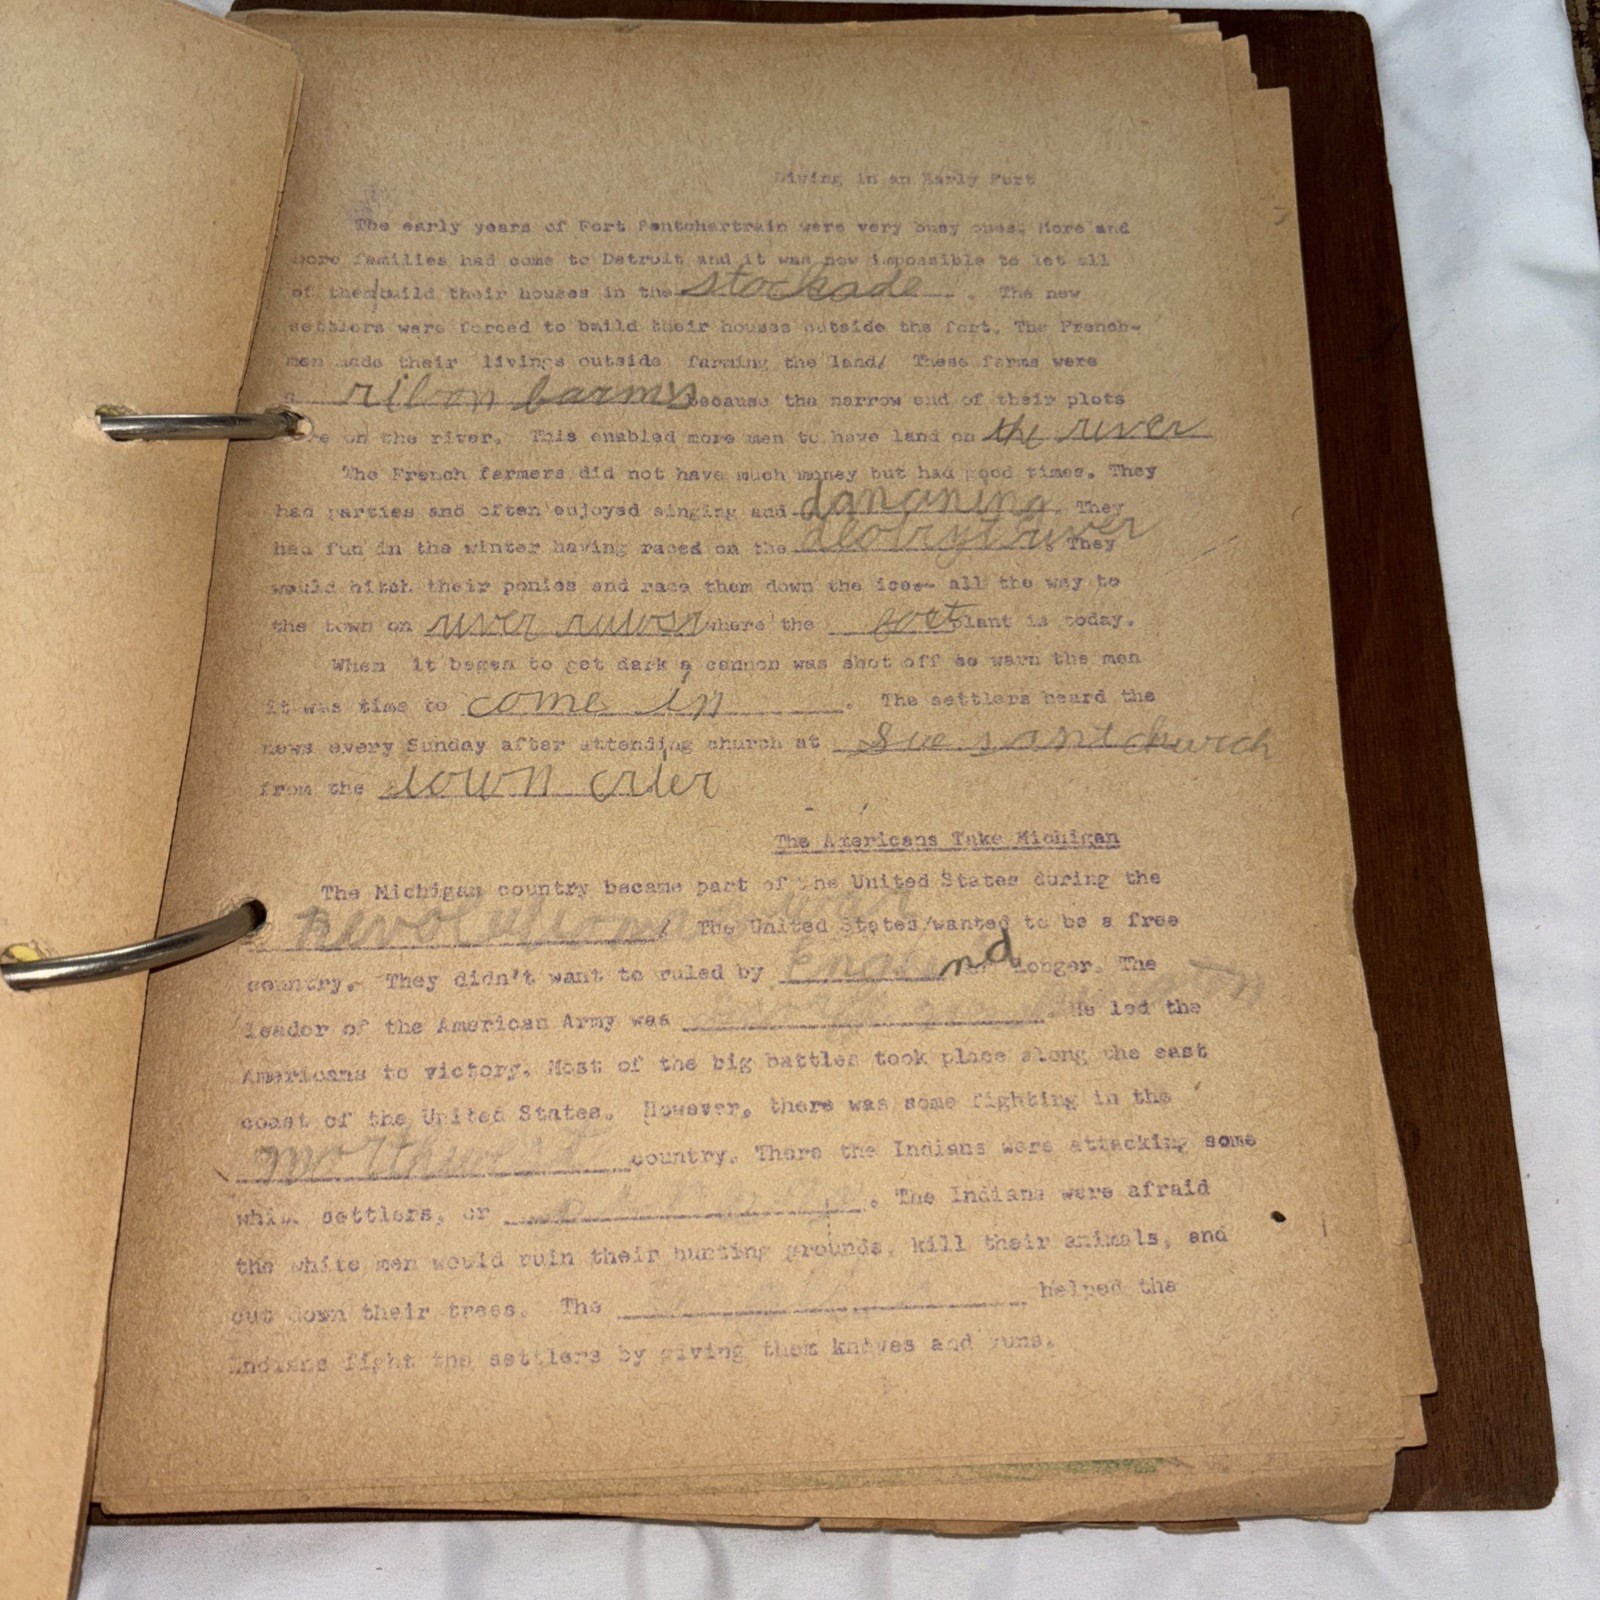 Living in an Early Fort
The early years of Fort Pontchartrain were very busy ones. More and
more families had come to Detroit and it was now impossible to let all
of them/build their houses in the stockade . The new
settlers were forced to build their houses outside the fort. The French-
men made their livings outside farming the land/ These farms were
ribon farms because the narrow end of their plots
on the river. This enabled more men to have land on the river
The French farmers did not have much money but had good times. They
had parties and often enjoyed singing and dancining. They
had fun in the winter having races on the river They
would hitch their ponies and race them down the ice-- all the way to
the town on river where the plant is today.
When it began to get dark a cannon was shot off to warn the men
it was time to come in . The settlers heard the
news every Sunday after attending church at church
from the town crier
The Americans Take Michigan
The Michigan country became part of the United States during the
Revolutionary war / The United States/wanted to be a free
country. They didn't want to ruled by England longer. The
leader of the American Army was . He led the
Americans to victory. Most of the big battles took place along the east
coast of the United States. However, there was some fighting in the
northwest country. There the Indians were attacking some
white settlers, or . The Indians were afraid
the white men would ruin their hunting grounds, kill their animals, and
cut down their trees. The helped the
Indians fight the settlers by giving them knives and guns.